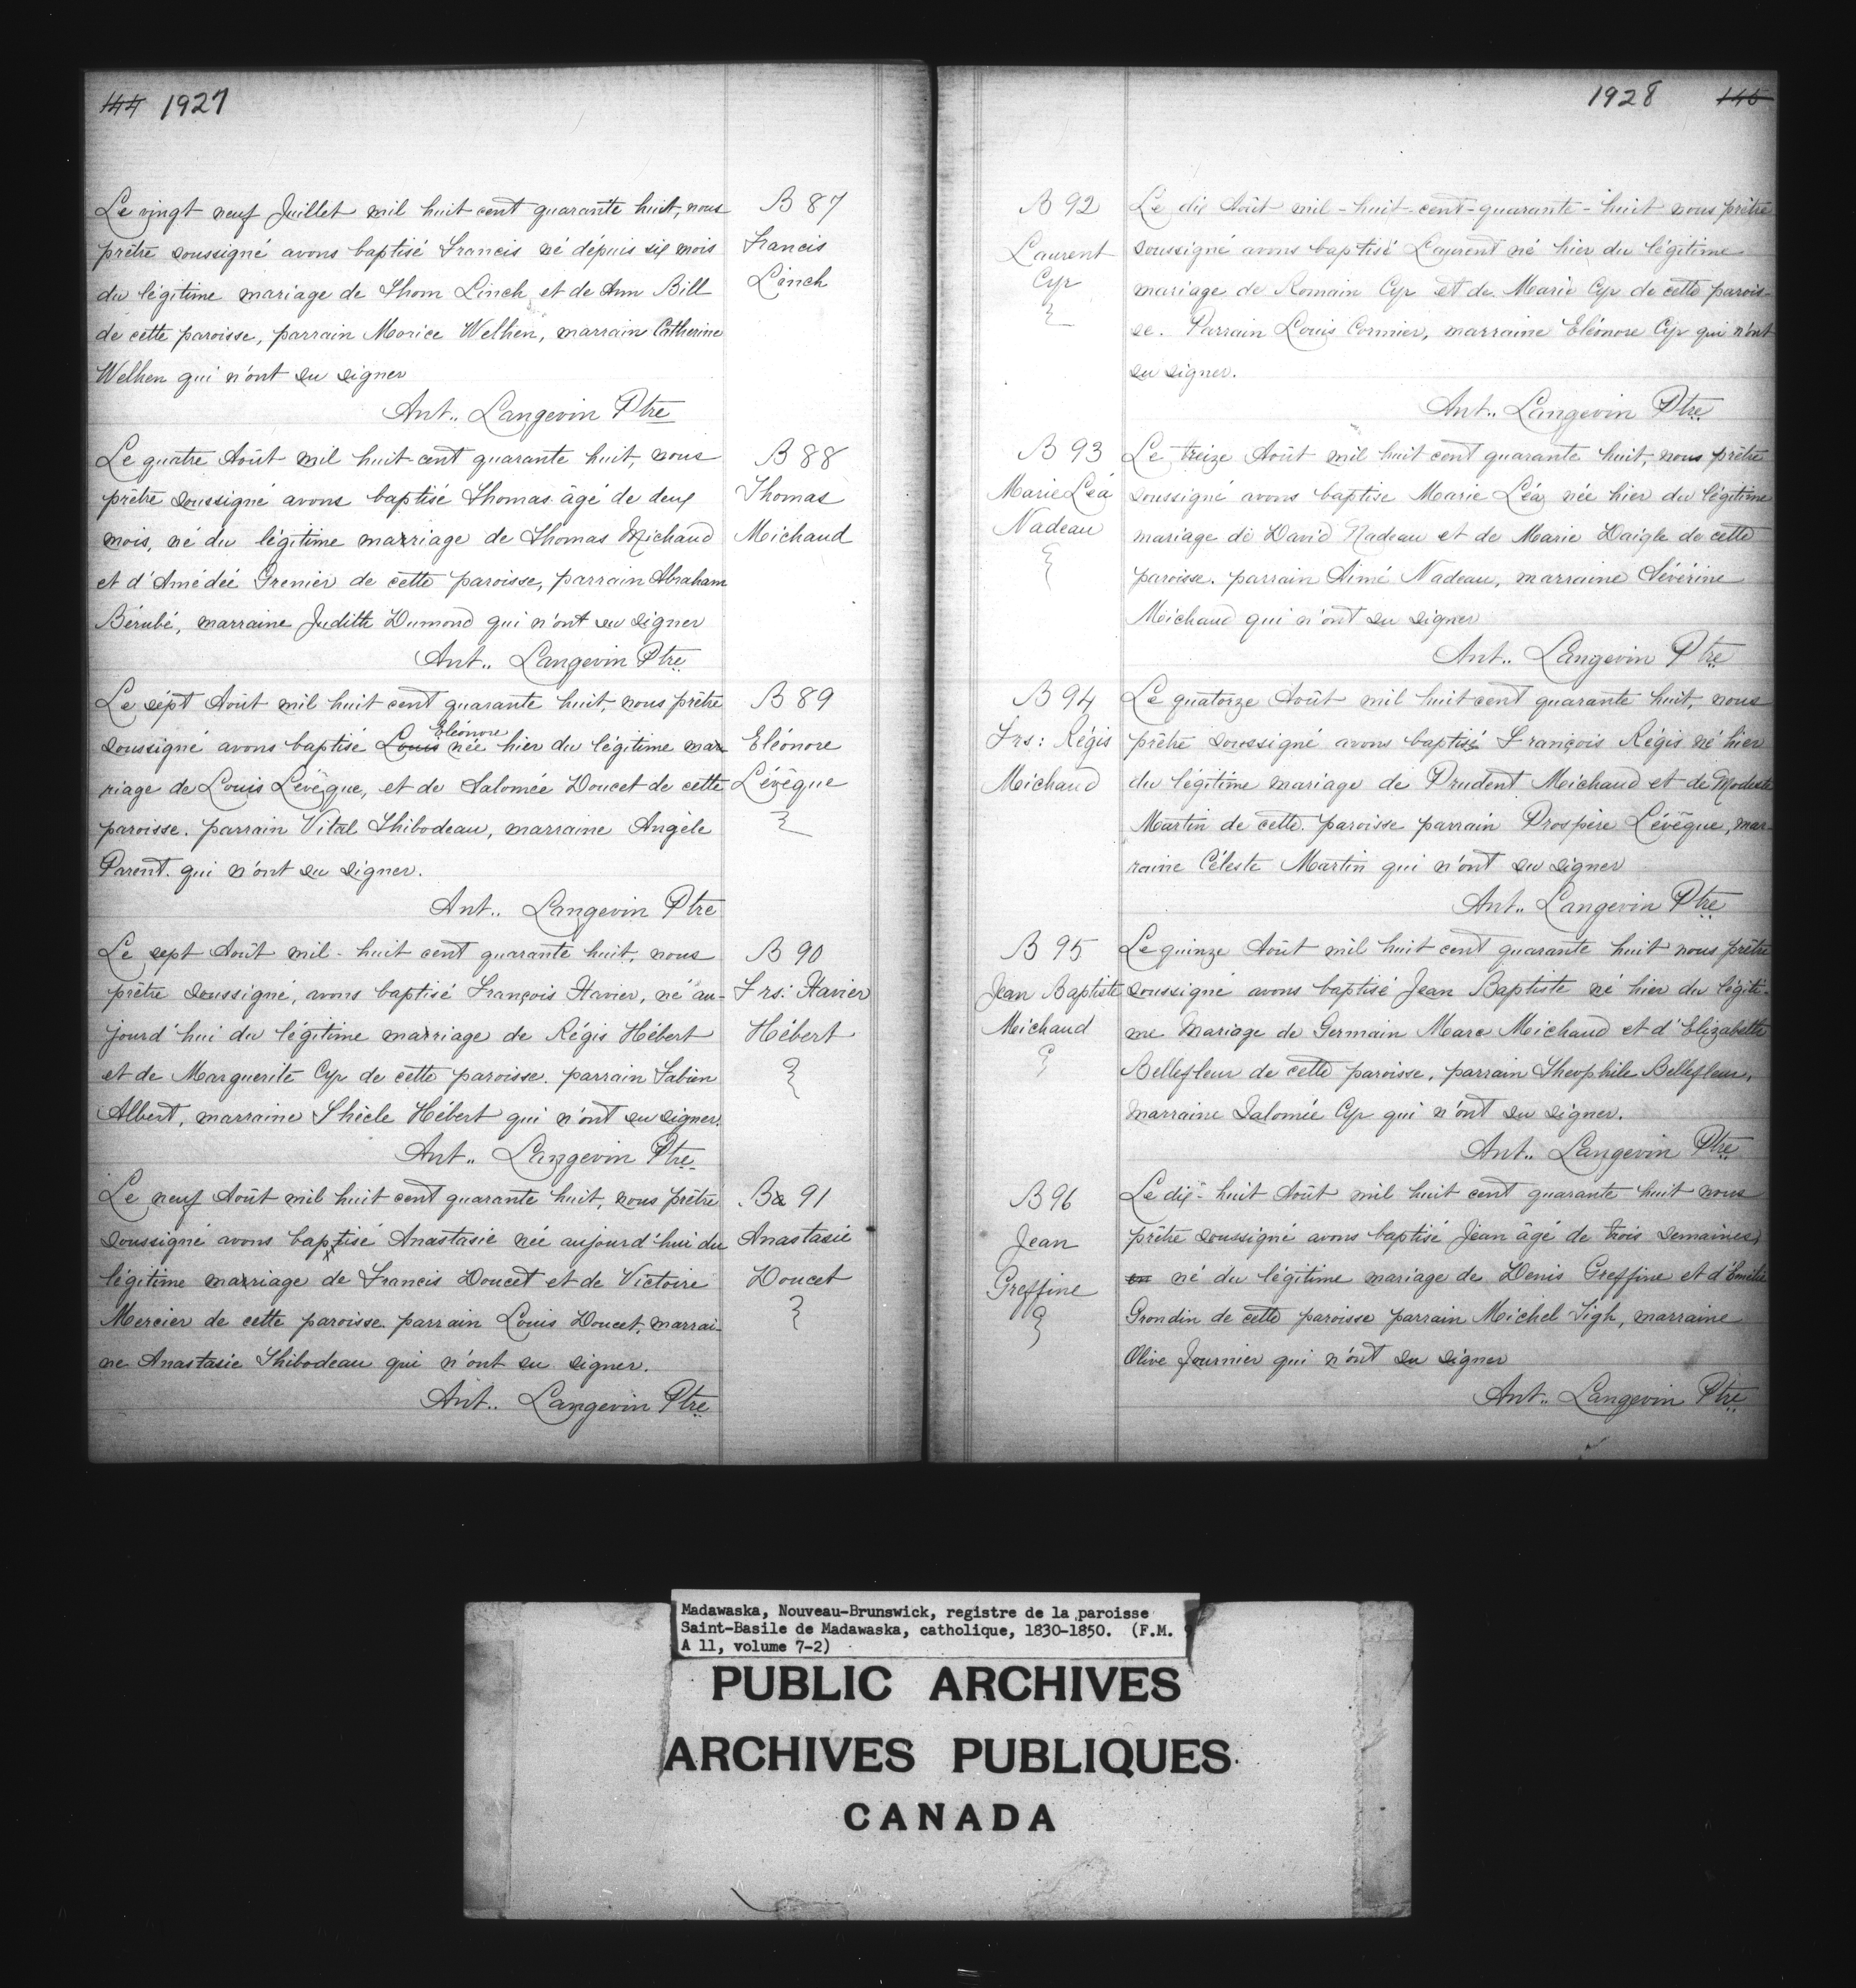 144 1927
Le vingt neuf Juillet mil huit cent quarante huit, nous
prêtre soussigné avons baptisé Francis né dépuis six mois
du légitime mariage de Thom Linch et de Ann Bill
de cette paroisse, parrain Morice Welhen, marrain Catherine
Welhen qui n'ont su signer
Ant.. Langevin Ptre
B 87
Francis
Linch
Le quatre Août mil huit-cent quarante huit, nous
prêtre soussigné avons baptisé Thomas âgé de deux
mois, né du légitime marriage de Thomas Michaud
et d'Amédée Grenier de cette paroisse, parrain Abraham
Bérubé, marraine Judith Dumond qui n'ont su signer
Ant.. Langevin Ptre
B 88
Thomas
Michaud
Le sept Août mil huit cent quarante huit, nous prêtre
Eléonore
soussigné avons baptisé Louis née hier du légitime mar
riage de Louis Lévêque, et de Salomée Doucet de cette
paroisse. parrain Vital Thibodeau, marraine Angèle
Parent. qui n'ont su signer.
Ant.. Langevin Ptre
B 89
Eléonore
Lévêque
Le sept Août mil-huit cent quarante huit, nous
prêtre soussigné, avons baptisé François Xavier, né au-
jourd'hui du légitime marriage de Régis Hébert
et de Marguerite Cyr de cette paroisse. parrain Fabien
Albert, marraine Thècle Hébert qui n'ont su signer.
Ant.. Langevin Ptre
B 90
Frs: Xavier
Hébert
Le neuf Août mil huit cent quarante huit, nous prêtre
soussigné avons baptisé Anastasie née aujourd'hui du
légitime marriage de Francis Doucet et de Victoire
Mercier de cette paroisse. parrain Louis Doucet, marrai-
ne Anastasie Thibodeau qui n'ont su signer.
Ant.. Langevin Ptre
B 91
Anastasie
Doucet
1928 145
B 92
Laurent
Cyr
Le dix Août mil-huit-cent-quarante-huit nous prêtre
soussigné avons baptisé Laurent né hier du légitime
mariage de Romain Cyr et de Marie Cyr de cette parois-
se. Parrain Louis Cormier, marraine Eléonore Cyr qui n'ont
su signer.
Ant.. Langevin Ptre
B 93
Marie Léa
Nadeau
Le treize Août mil huit cent quarante huit, nous prêtre
soussigné avons baptise Marie Léa née hier du légitime
mariage de David Nadeau et de Marie Daigle de cette
paroisse. parrain Aimé Nadeau, marraine Séverine
Michaud qui n'ont su signer
Ant.. Langevin Ptre
B 94
Frs: Régis
Michaud
Le quatorze Août mil huit cent quarante huit, nous
prêtre soussigné avons baptisé François Régis né hier
du légitime mariage de Prudent Michaud et de Modeste
Martin de cette paroisse parrain Prospère Lévêque, mar-
raine Céleste Martin qui n'ont su signer
Ant.. Langevin Ptre
B 95
Jean Baptiste
Michaud
Le quinze Août mil huit cent quarante huit nous prêtre
soussigné avons baptisé Jean Baptiste né hier du légiti-
me mariage de Germain Marc Michaud et d'Elizabette
Bellefleur de cette paroisse, parrain Theophile Bellefleur,
marraine Salomée Cyr qui n'ont su signer.
Ant.. Langevin Ptre
B 96
Jean
Greffine
Le dix-huit Août mil huit cent quarante huit nous
prêtre soussigné avons baptisé Jean âgé de trois semaines,
en né du légitime mariage de Denis Greffine et d'Emilie
Grondin de cette paroisse parrain Michel Tigh, marraine
Olive Fournier qui n'ont su signer
Ant.. Langevin Ptre
Madawaska, Nouveau-Brunswick, registre de la paroisse
Saint-Basile de Madawaska, catholique, 1830-1850. (F.M.
A 11, volume 7-2)
PUBLIC ARCHIVES
ARCHIVES PUBLIQUES
CANADA